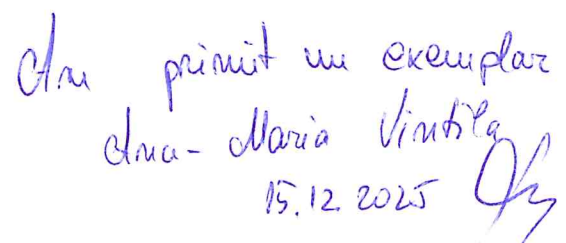 Am primit un exemplar
Ana-Maria Vintila
15.12.2025